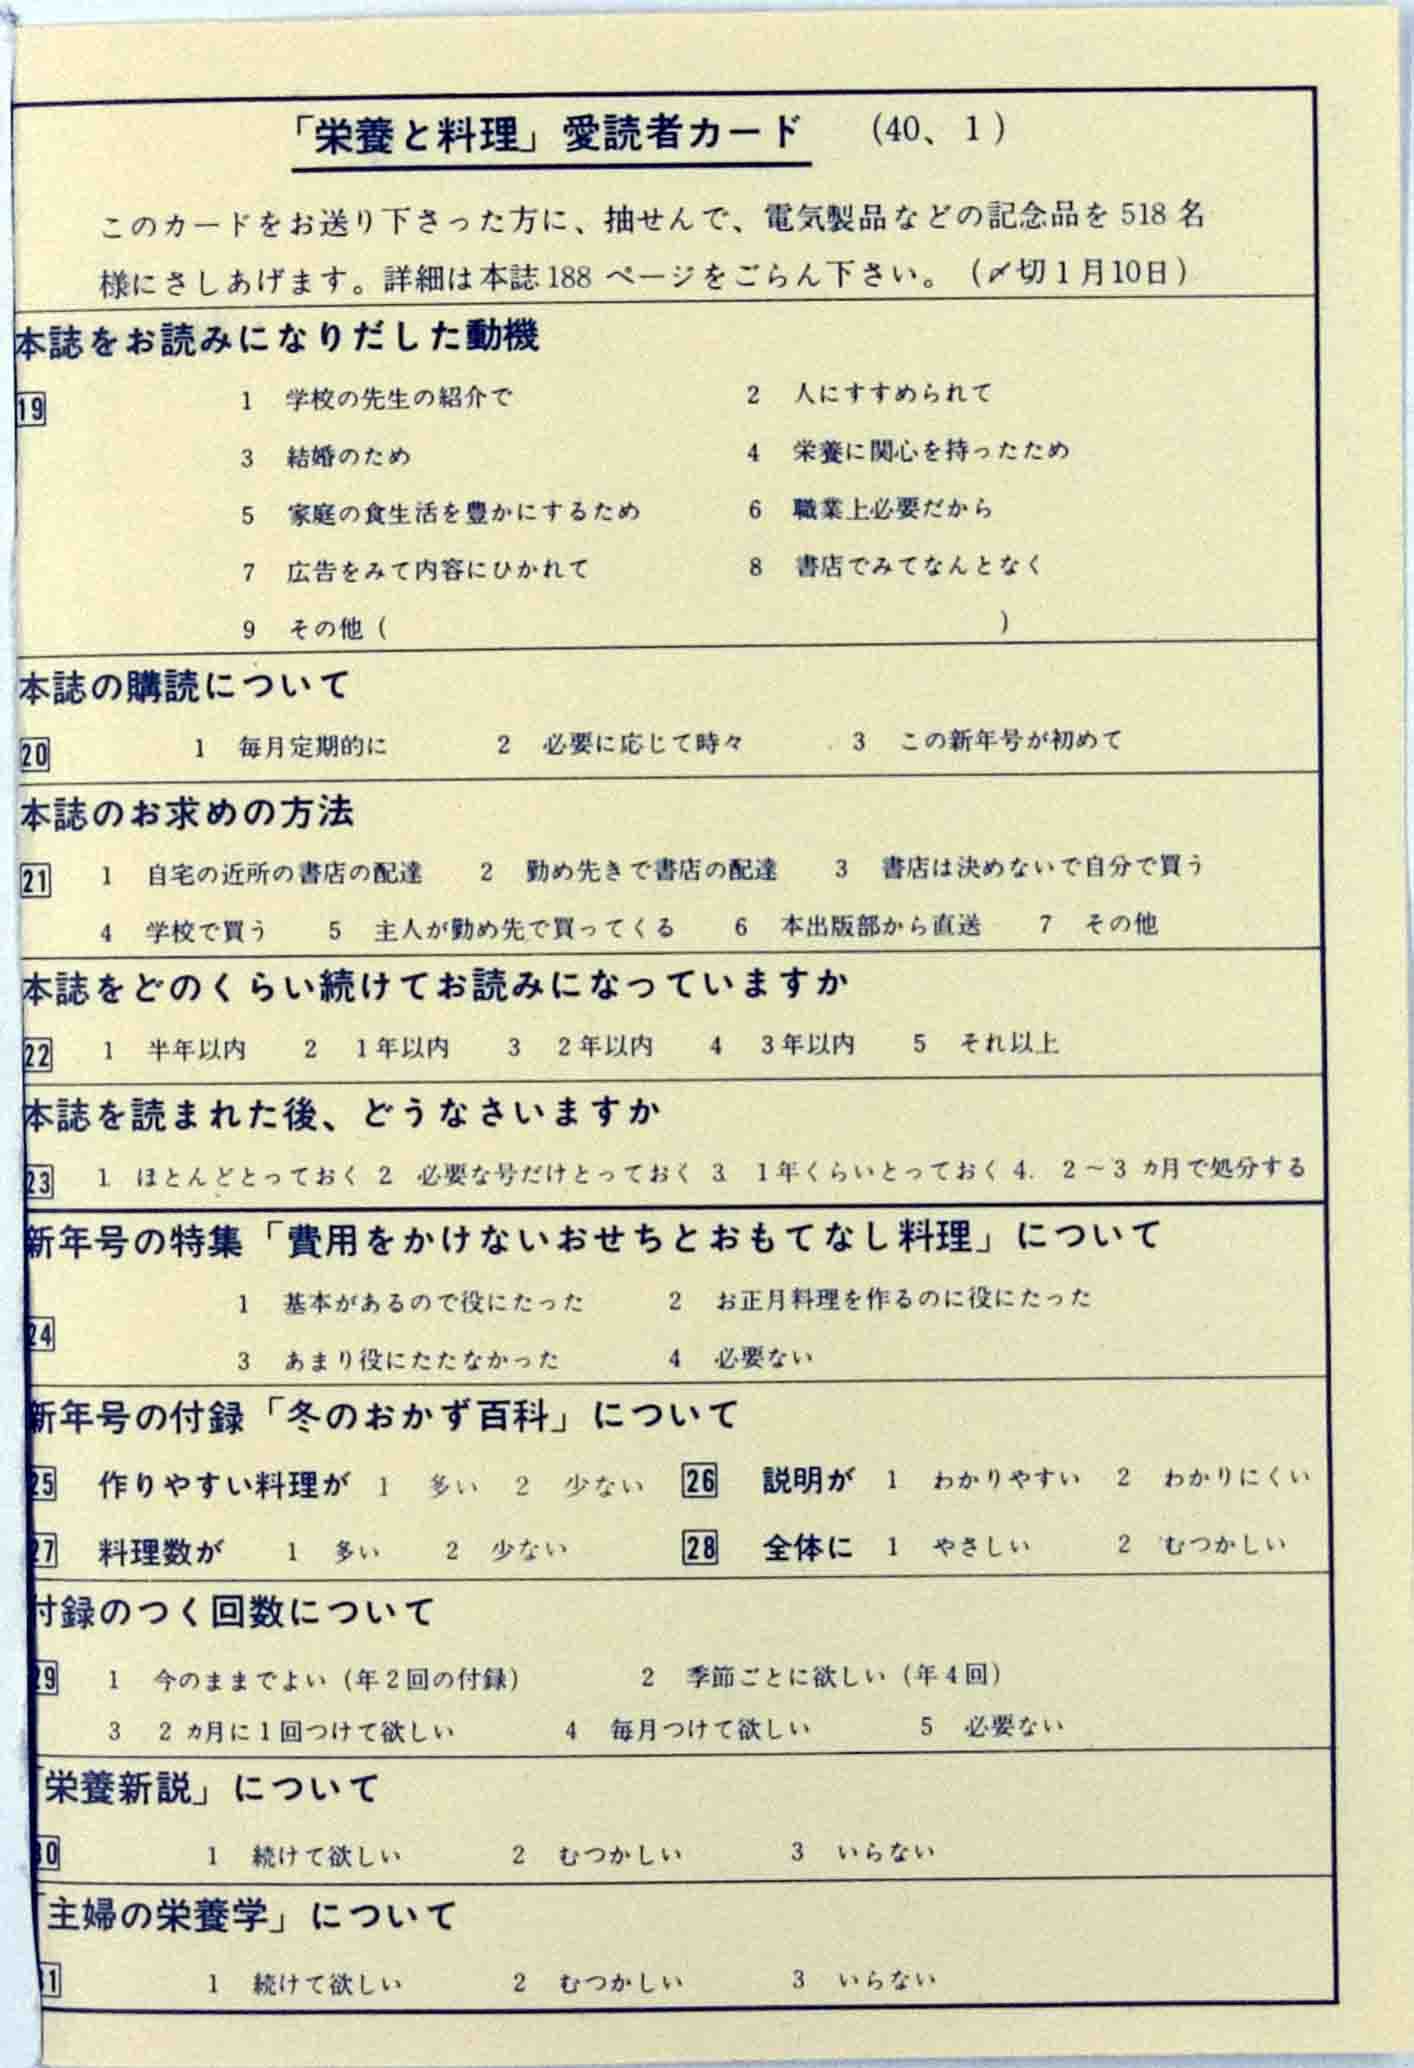 「栄養と料理」愛読者カード　(40、1)
このカードをお送り下さった方に、抽せんで、電気製品などの記念品を518名
様にさしあげます。詳細は本誌188ページをごらん下さい。(〆切1月10日)
本誌をお読みになりだした動機
19　1　学校の先生の紹介で　2　人にすすめられて
3　結婚のため　4　栄養に関心を持ったため
5　家庭の食生活を豊かにするため　6　職業上必要だから
7　広告をみて内容にひかれて　8　書店でみてなんとなく
9　その他(　　　)
本誌の購読について
20　1　毎月定期的に　2　必要に応じて時々　3　この新年号が初めて
本誌のお求めの方法
21　1　自宅の近所の書店の配達　2　勤め先きで書店の配達　3　書店は決めないで自分で買う
4　学校で買う　5　主人が勤め先で買ってくる　6　本出版部から直送　7　その他
本誌をどのくらい続けてお読みになっていますか
22　1　半年以内　2　1年以内　3　2年以内　4　3年以内　5　それ以上
本誌を読まれた後、どうなさいますか
23　1　ほとんどとっておく　2　必要な号だけとっておく　3　1年くらいとっておく　4.　2～3ヵ月で処分する
新年号の特集「費用をかけないおせちとおもてなし料理」について
1　基本があるので役にたった　2　お正月料理を作るのに役にたった
24
3　あまり役にたたなかった　4　必要ない
新年号の付録「冬のおかず百科」について
25　作りやすい料理が　1　多い　2　少ない　26　説明が　1　わかりやすい　2　わかりにくい
27　料理数が　1　多い　2　少ない　28　全体に　1　やさしい　2　むつかしい
付録のつく回数について
29　1　今のままでよい(年2回の付録)　2　季節ごとに欲しい(年4回)
3　2ヵ月に1回つけて欲しい　4　毎月つけて欲しい　5　必要ない
「栄養新説」について
30　1　続けて欲しい　2　むつかしい　3　いらない
「主婦の栄養学」について
31　1　続けて欲しい　2　むつかしい　3　いらない